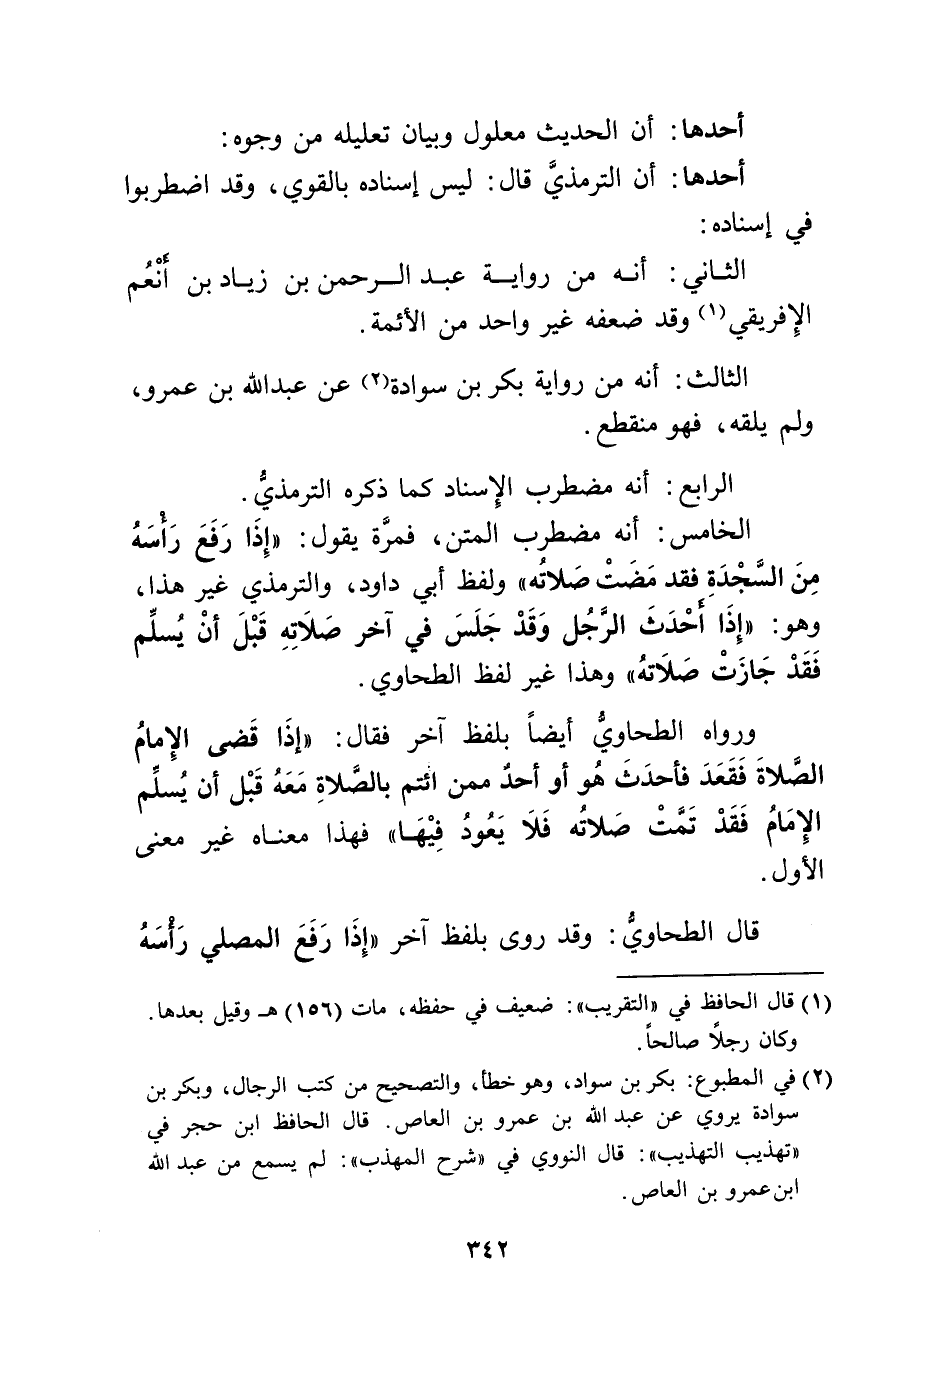 أحدها: أن الحديث معلول وبيان تعليله من وجوه:
أحدها: أن الترمذيَّ قال: ليس إسناده بالقوي، وقد اضطربوا
في إسناده:
الثاني: أنه من رواية عبد الرحمن بن زياد بن أَنْعُم
الإفريقي(١) وقد ضعفه غير واحد من الأئمة.
الثالث: أنه من رواية بكر بن سوادة(٢) عن عبدالله بن عمرو،
ولم يلقه، فهو منقطع.
الرابع: أنه مضطرب الإسناد كما ذكره الترمذيُّ.
الخامس: أنه مضطرب المتن، فمرَّة يقول: «إِذَا رَفَعَ رَأْسَهُ
مِنَ السَّجْدَةِ فقد مَضَتْ صَلاتُه» ولفظ أبي داود، والترمذي غير هذا،
وهو: «إِذَا أَحْدَثَ الرَّجُل وَقَدْ جَلَسَ في آخر صَلَاتِهِ قَبْلَ أنْ يُسلِّم
فَقَدْ جَازَتْ صَلَاتهُ» وهذا غير لفظ الطحاوي.
ورواه الطحاويُّ أيضاً بلفظ آخر فقال: «إذَا قَضى الإمامُ
الصَّلاةَ فَقَعَدَ فأحدَثَ هُو أو أحدٌ ممن ائتم بالصَّلاةِ مَعَهُ قَبْل أن يُسلِّم
الإِمَامُ فَقَدْ تَمَّتْ صَلاتُه فَلَا يَعُودُ فِيْهَا» فهذا معناه غير معنى
الأول.
قال الطحاويُّ: وقد روى بلفظ آخر «إِذَا رَفَعَ المصلي رَأْسَهُ
(١) قال الحافظ في «التقريب»: ضعيف في حفظه، مات (١٥٦) هـ وقيل بعدها.
وكان رجلاً صالحاً.
(٢) في المطبوع: بكر بن سواد، وهو خطأ، والتصحيح من كتب الرجال، وبكر بن
سوادة يروي عن عبد الله بن عمرو بن العاص. قال الحافظ ابن حجر في
«تهذيب التهذيب»: قال النووي في «شرح المهذب»: لم يسمع من عبد الله
ابن عمرو بن العاص.
٣٤٢